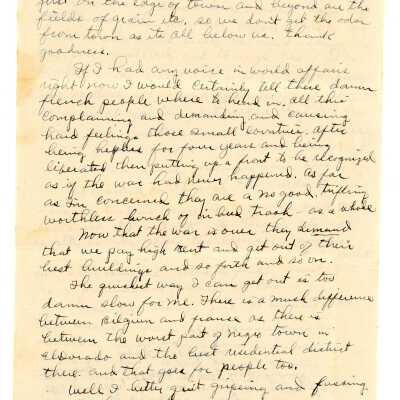 just on the edge of town and beyond are the
fields of grain etc. so we don't get the odor
from town as its all below us. thank
goodness.
If I had any voice in world affairs
right now I would certainly tell these damn
french people where to head in. all this
complaining and demanding and causing
hard feelings those small countries. after
being helpless for four years and being
liberated then putting up a front to be recognized
as if the war had never happened. As far
as I'm concerned they are a no good, trifling
worthless bunch of inbred trash - as a whole
Now that the war is over they demand
that we pay high rent and get out of their
best buildings and so forth and so on.
The quickest way I can get out is too
damn slow for me. There is a much difference
between Belgium and france as there is
between the worst part of negro town in
ElDorado and the best residential district
there. and that goes for people too.
Well I better quit griping and fussing.